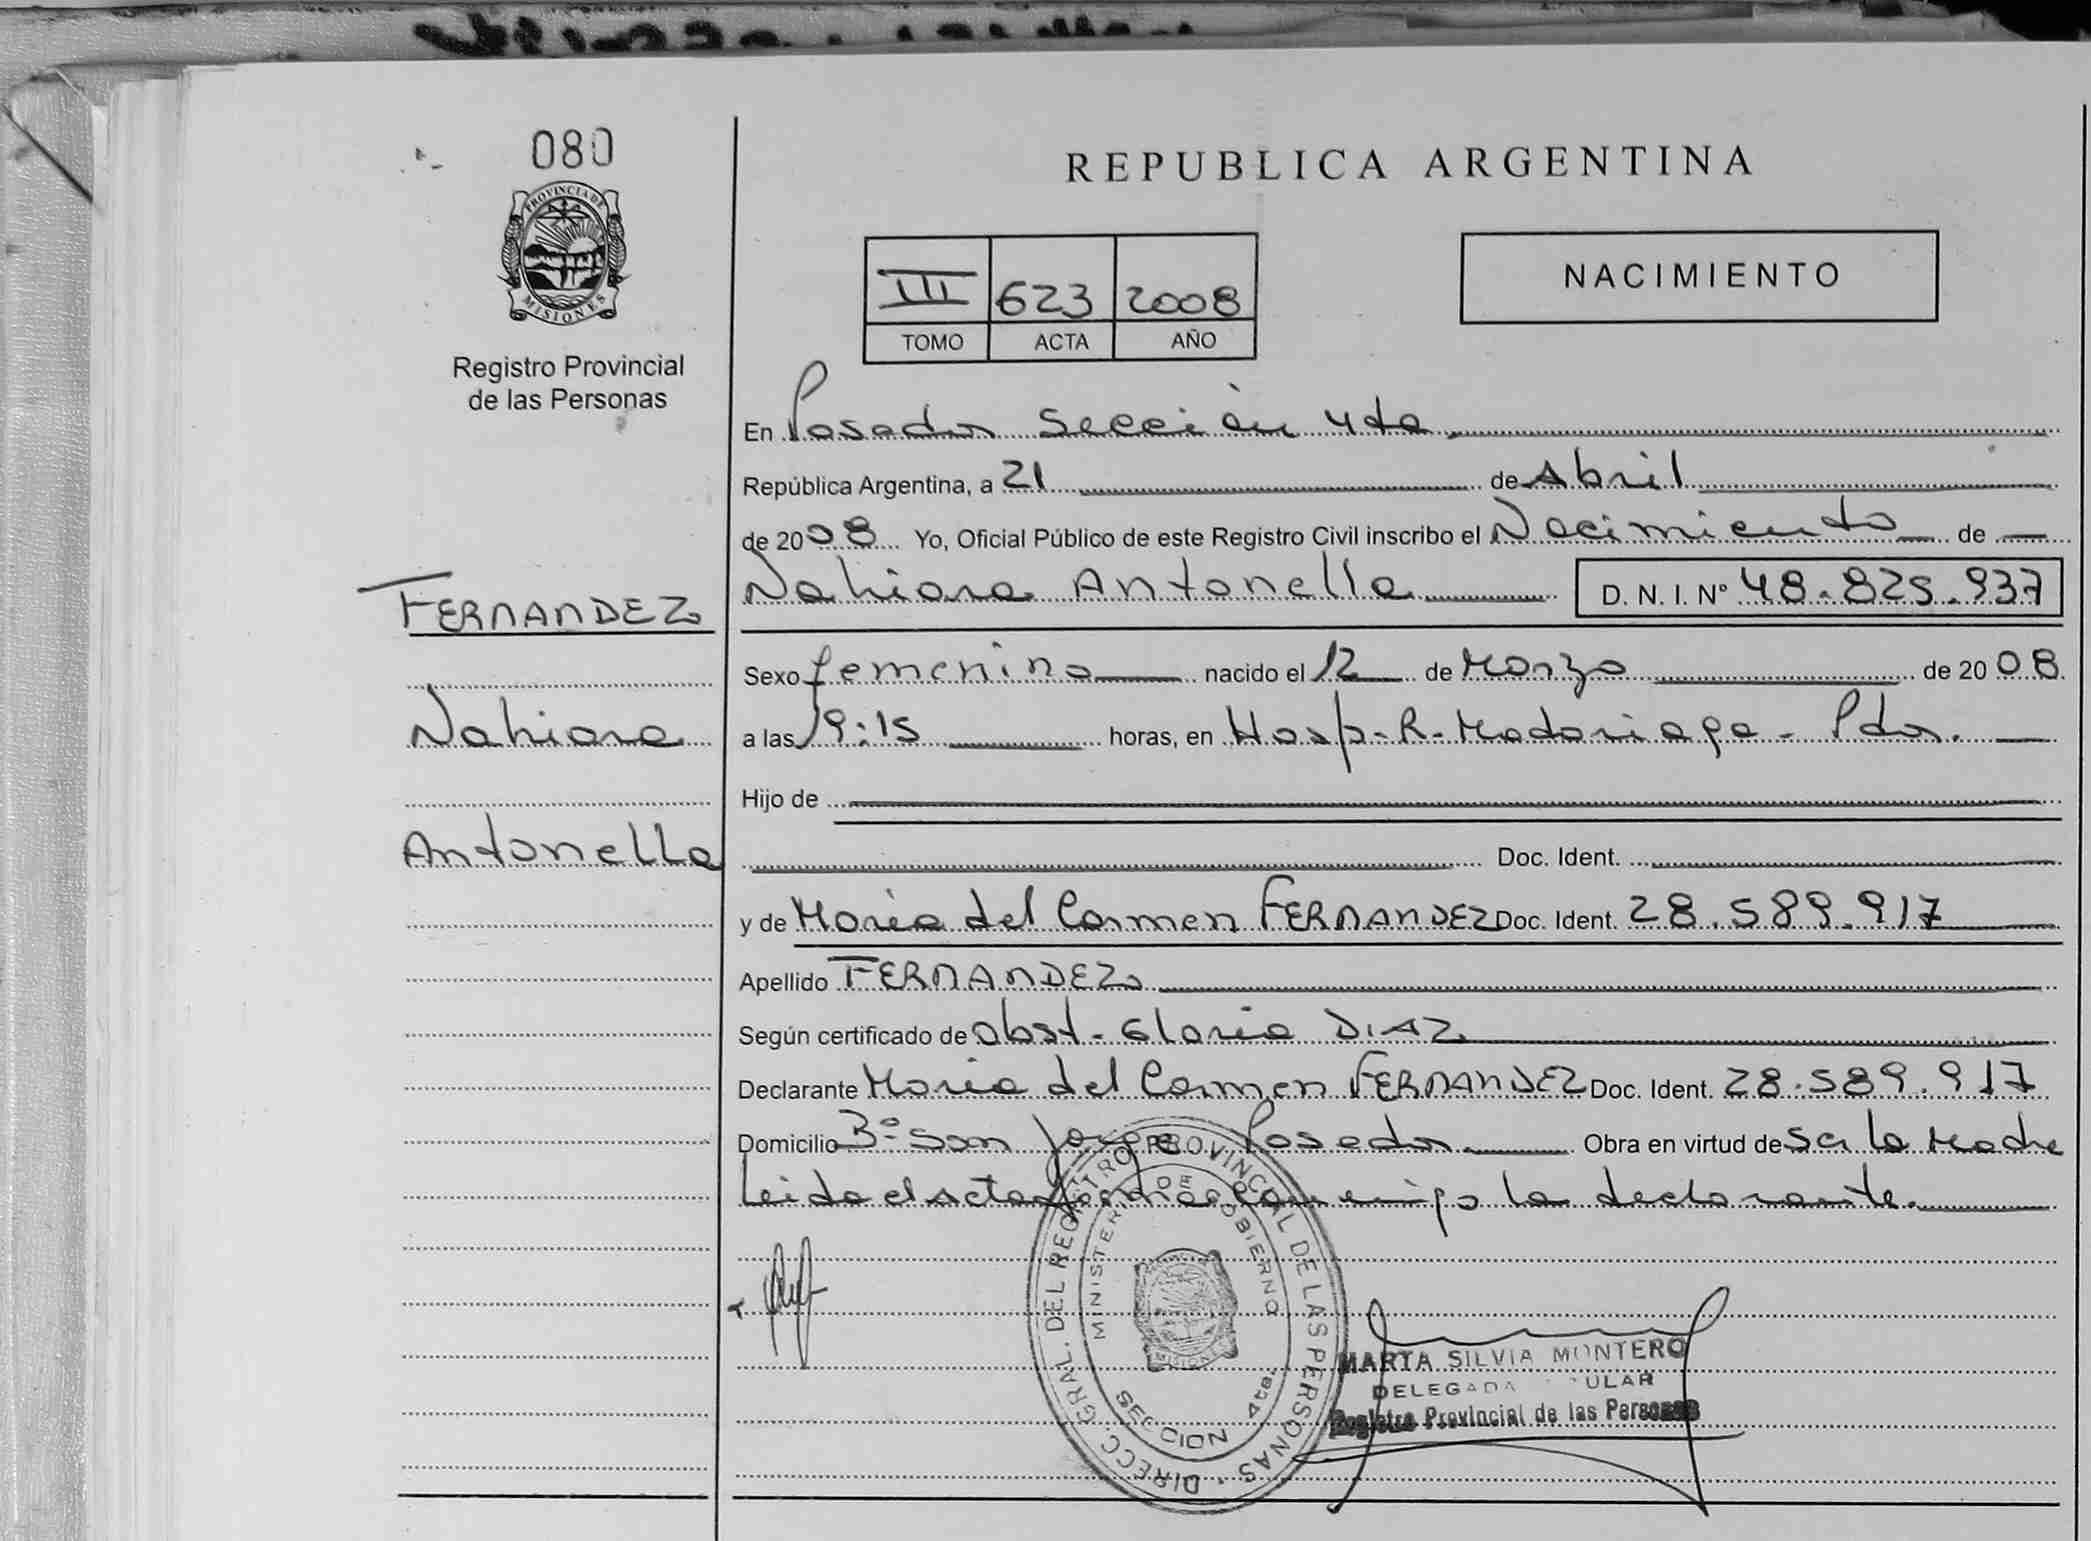 080
PROVINCIA DE
MISIONES
Registro Provincial
de las Personas
FERNANDEZ
Nahiara
Antonella
REPUBLICA ARGENTINA
III 623 2008
TOMO ACTA AÑO
NACIMIENTO
En Posadas Sección 4ta
República Argentina, a 21 de Abril
de 2008 Yo, Oficial Público de este Registro Civil inscribo el Nacimiento de
Nahiara Antonella D. N. I. Nº 48.825.937
Sexo femenino nacido el 12 de Marzo de 2008
a las 19:15 horas, en Hosp. R. Madariaga - Pdas.
Hijo de
Doc. Ident.
y de María del Carmen FERNANDEZ Doc. Ident. 28.589.917
Apellido FERNANDEZ
Según certificado de Obst. Gloria DIAZ
Declarante María del Carmen FERNANDEZ Doc. Ident. 28.589.917
Domicilio Bº San Jorge Posadas Obra en virtud de Ser la Madre
Leida el Acta conmigo la declarante.
DIRECC. GRAL. DEL REGISTRO PROVINCIAL DE LAS PERSONAS
MINISTERIO DE GOBIERNO
SECCION 4ta.
MARTA SILVIA MONTERO
DELEGADA
Registro Provincial de las Personas